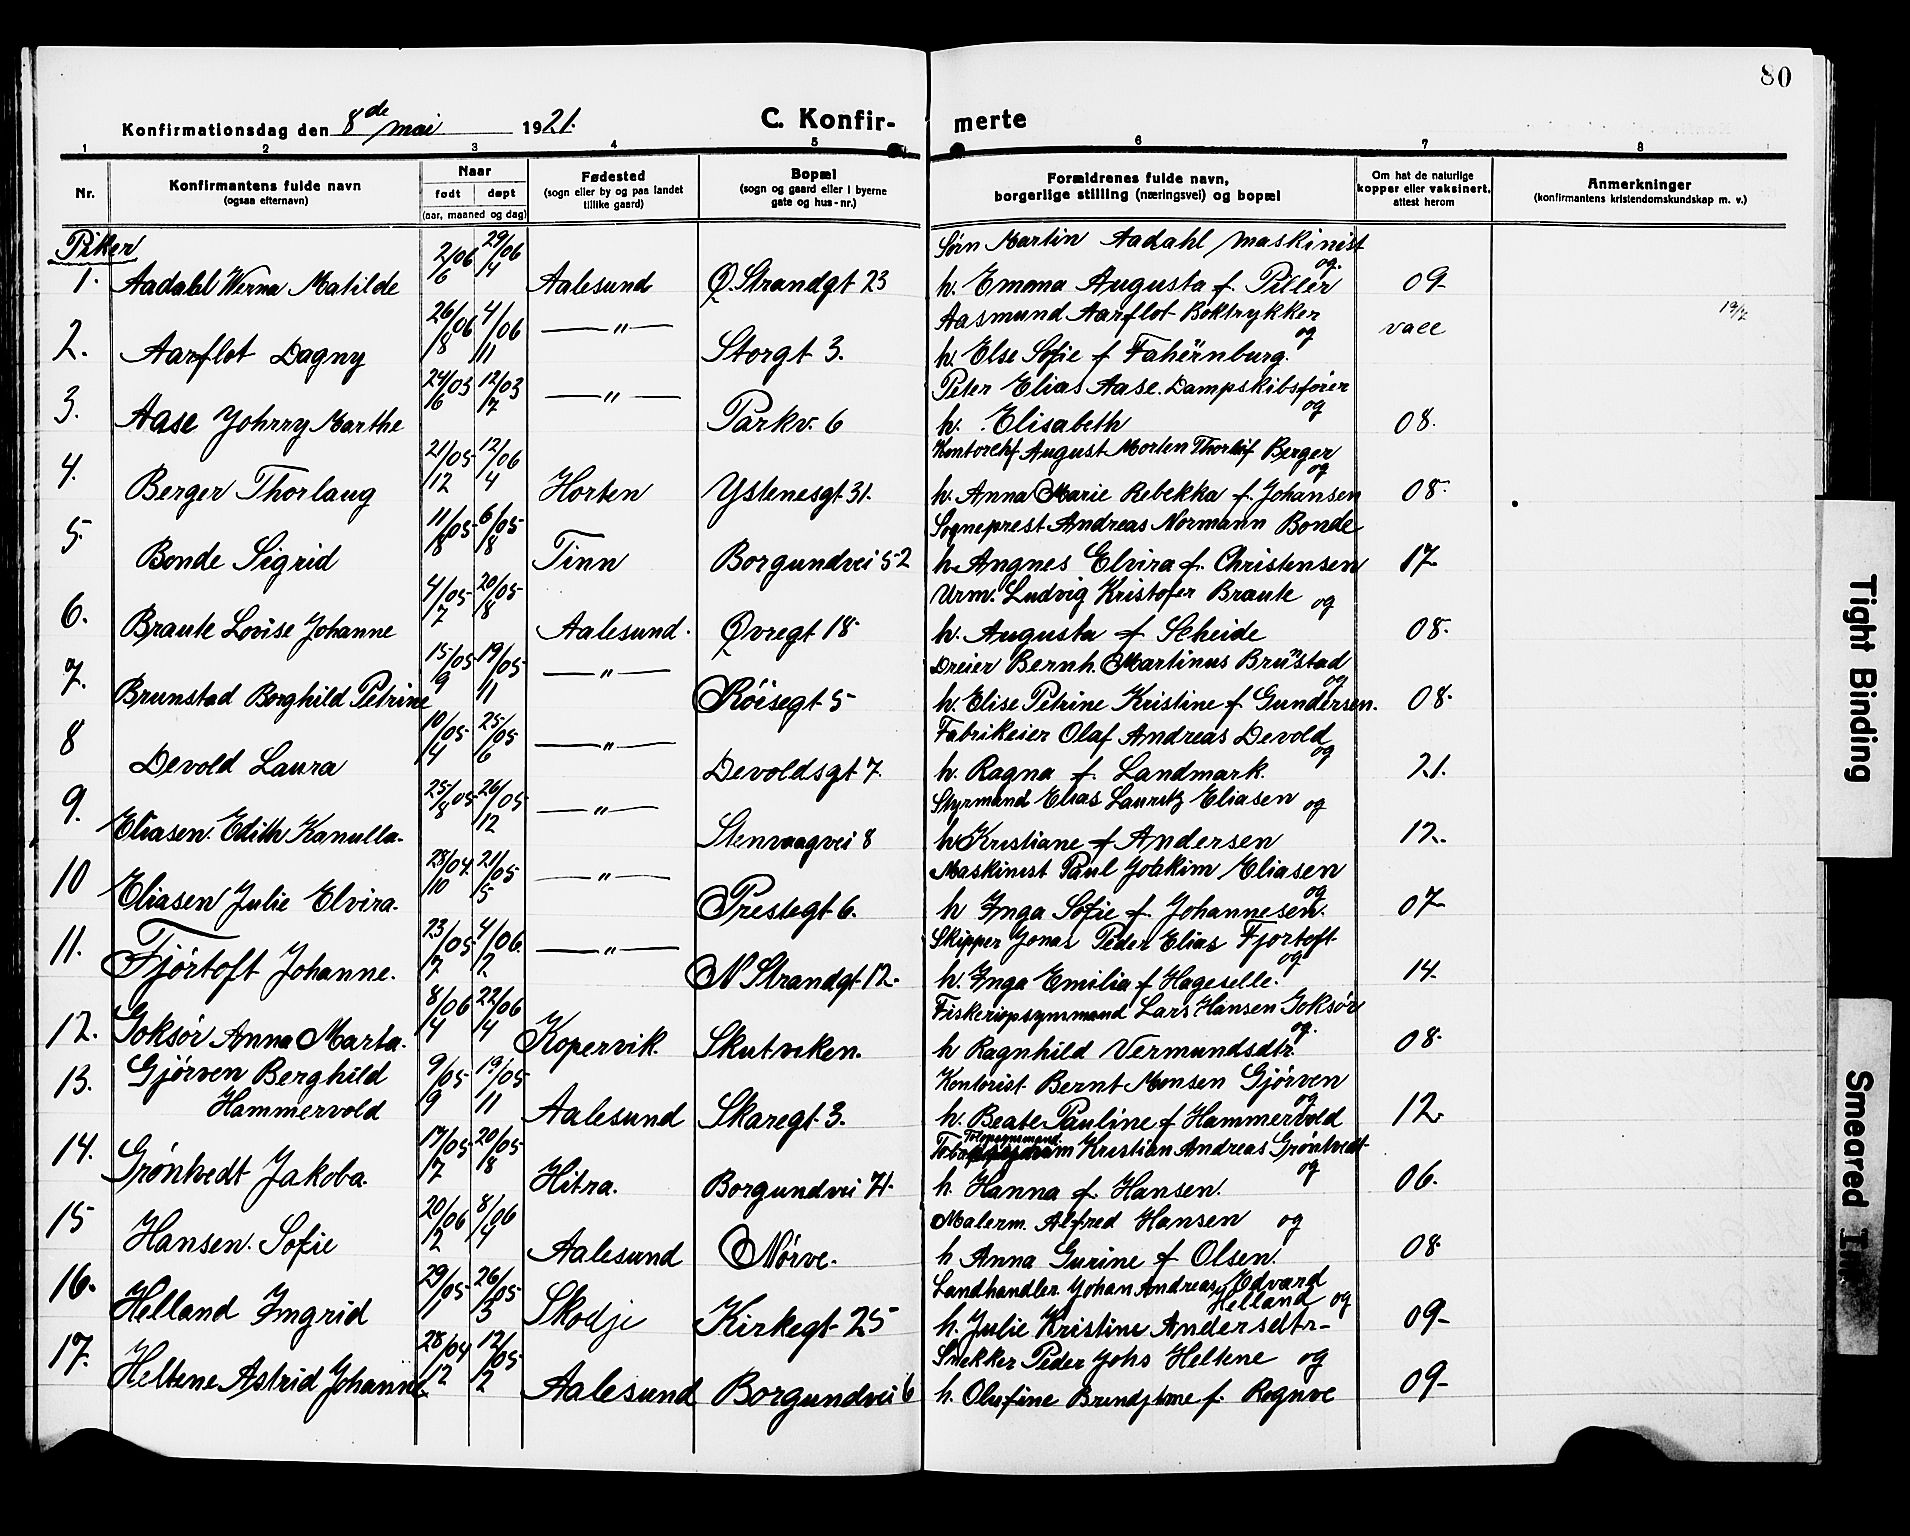 80
Konfirmationsdag den 8de mai 1921. C. Konfirmerte
1 2 3 4 5 6 7 8
Nr. Konfirmantens fulde navn (ogsaa efternavn) Naar født døpt (aar, maaned og dag) Fødested (sogn eller by og paa landet tillike gaard) Bopæl (sogn og gaard eller i byerne gate og hus-nr.) Forældrenes fulde navn, borgerlige stilling (næringsvei) og bopæl Om hat de naturlige kopper eller vaksinert, attest herom Anmerkninger (konfirmantens kristendomskundskap m. v.)
Piker
Sørn Martin Aadahl maskinist og
1. Aadahl Werna Matilde 2/6 06 29/4 06 Aalesund Ø. Strandgt 23 h. Emma Augusta f. Piller 09
Aasmund Aarflot Boktrykker og
2. Aarflot Dagny 26/8 06 4/11 06 —"— Storgt 3. h. Else Sofie f Fahërnburg. vacc 19/7
Peter Elias Aase. Dampskibsfører og
3. Aase Johrry Marthe 24/6 03 12/7 03 —"— Parkv. 6 h. Elisabeth 08.
Kontorchf August Morten Thorleif Berger og
4. Berger Thorlaug 21/12 05 12/4 06 Horten Ystenesgt 31. h. Anna Marie Rebekka f. Johansen 08.
Sogneprest Andreas Normann Bonde
5. Bonde Sigrid 11/8 05 6/8 05 Tinn Borgundvei 52 h. Angnes Elvira f. Christensen 17
Urm. Ludvig Kristofer Braute og
6. Braute Lovise Johanne 4/7 05 20/8 05 Aalesund. Øvregt 18 h. Augusta f Scheide 08.
Dreier Bernh. Martinus Brüstad og
7. Brunstad Borghild Petrine 15/9 05 19/11 05 —"— Røisegt 5 h. Elise Petrine Kristine f Gundersen. 08.
Fabrikeier Olaf Andreas Devold og
8 Devold Laura 10/4 05 25/6 05 —"— Devoldsgt 7. h. Ragna f Landmark. 21.
Styrmand Elias Lauritz Eliasen og
9. Eliasen. Edith Kanulla. 25/8 05 26/12 05 —"— Stenvaagvei 8 h Kristiane f Andersen 12.
Maskinist Paul Joakim Eliasen og
10 Eliasen Julie Elvira. 28/10 04 21/5 05 —"— Prestegt 6. h Inga Sofie f Johannesen. 07
Skipper Jonas Peder Elias Fjortoft og
11. Fjørtoft Johanne. 23/7 05 4/2 06. —"— N Strandgt 12. h. Inga Emilia f Hageselle. 14.
Fiskeriopsynmand Lars Hansen Goksør og.
12. Goksør Anna Marta. 8/14 06 22/4 06 Kopervik. Skutviken. h Ragnhild Vermundsdtr. 08.
Kontorist Bernt Monsen Gjørven og
13. Gjørven Berghild Hammervold 9/9 05 19/11 05 Aalesund Skaregt 3. h. Beate Pauline f Hammervold 12.
Kristian Andreas Grøntvedt og
14. Grøntvedt Jakoba. 17/7 05 20/8 05 Hitra. Borgundvei 71. h. Hanna f Hansen. 06.
Malerm. Alfred Hansen og
15 Hansen. Sofie 20/2 06 8/4 06 Aalesund Nørve. h Anna Gurine f Olsen. 08.
Landhandler Johan Andreas Edvard Helland og
16. Helland Ingrid 29/1 05 26/3 05 Skodje Kirkegt 25 h. Julie Kristine Andersdtr 09
Snekker Peder Johs Heltene og
17. Heltene Astrid Johanne 28/12 04 12/2 05 Aalesund Borgundvei 6 h. Olufine f. Rognve 09
Tight Binding
Smeared Ink